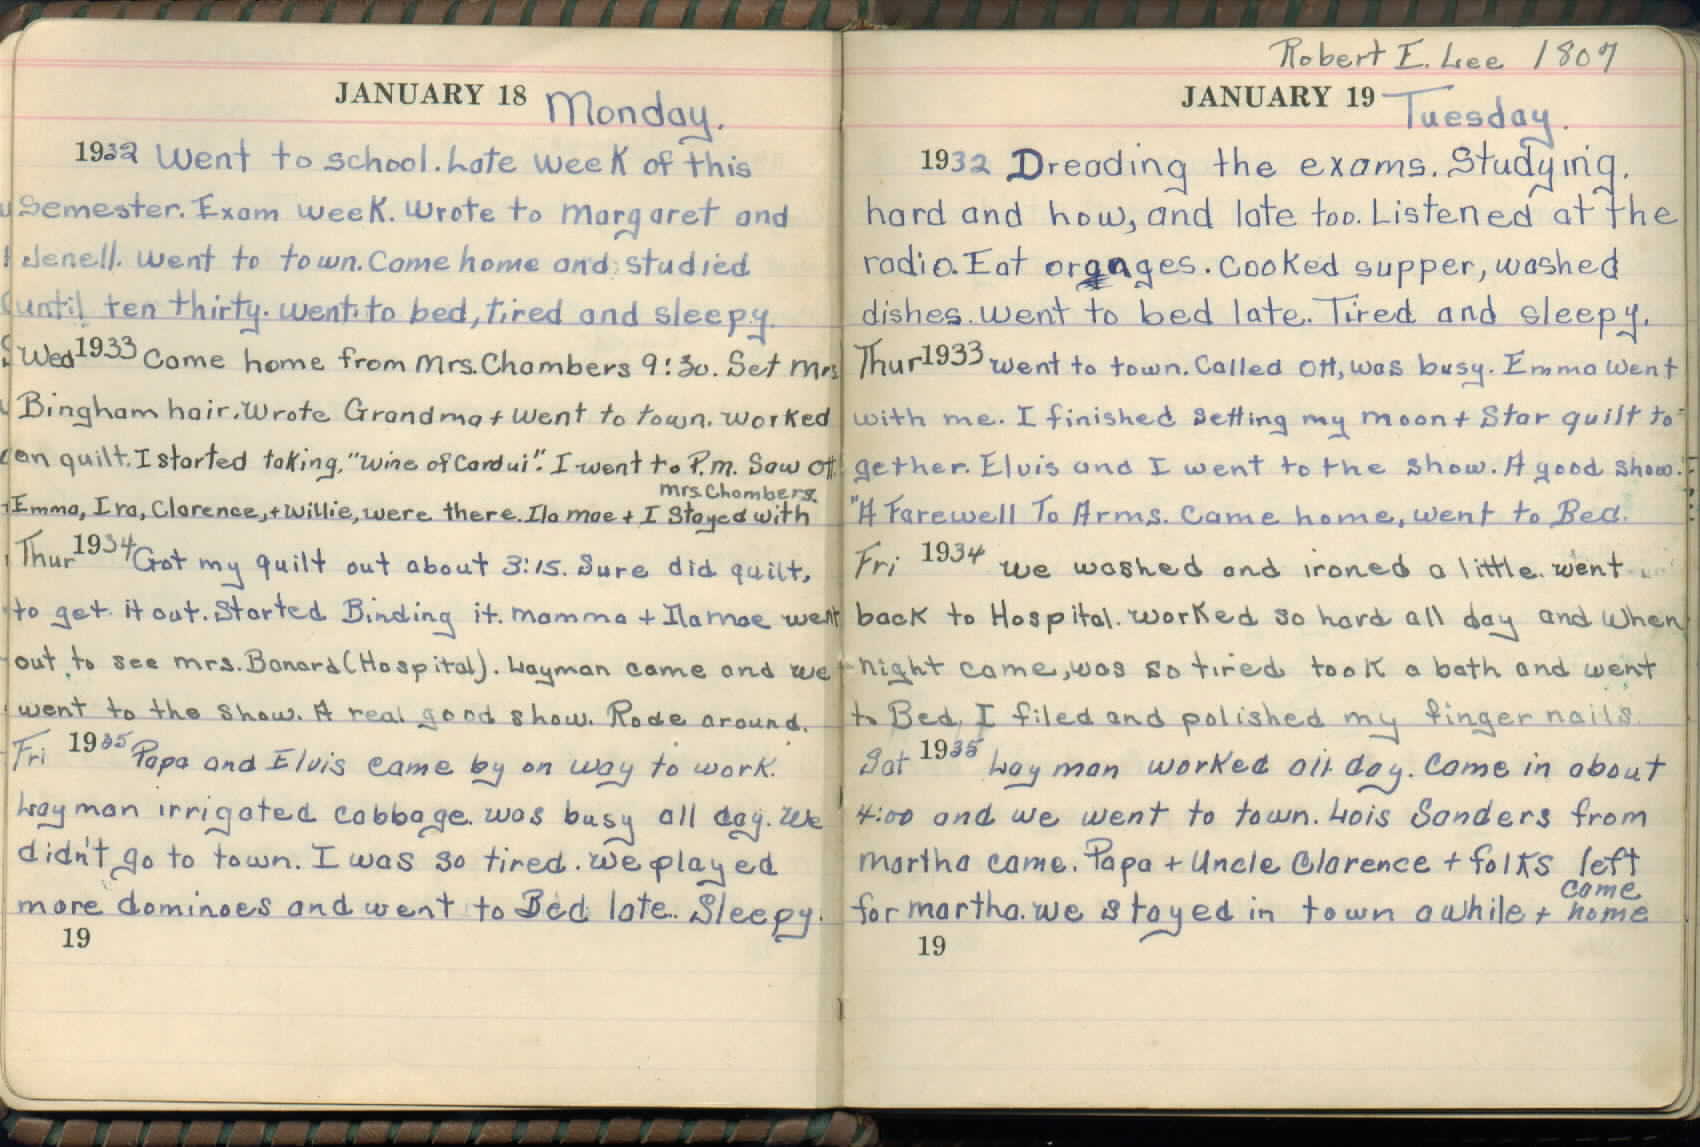 JANUARY 18 Monday.
1932 Went to school. Late week of this
Semester. Exam week. Wrote to Margaret and
Jenell. Went to town. Came home and studied
until ten thirty. Went to bed, tired and sleepy.
Wed 1933 Came home from Mrs. Chambers 9:30. Set Mrs
Bingham hair. Wrote Grandma + went to town. Worked
on quilt. I started taking. "Wine of Cardui". I went to P.m. Saw Ott
Mrs. Chambers.
Emma, Ira, Clarence, + Willie, were there. Ila mae + I Stayed with
Thur 1934 Got my quilt out about 3:15. Sure did quilt,
to get it out. Started Binding it. Mamma + Ila mae went
out to see Mrs. Banard (Hospital). Layman came and we
went to the show. A real good show. Rode around.
Fri 1935 Papa and Elvis came by on way to work.
Layman irrigated cabbage. Was busy all day. We
didn't go to town. I was so tired. We played
more dominoes and went to Bed late. Sleepy.
19
Robert E. Lee 1807
JANUARY 19 Tuesday.
1932 Dreading the exams. Studying.
hard and how, and late too. Listened at the
radio. Eat oranges. Cooked supper, washed
dishes. Went to bed late. Tired and sleepy.
Thur 1933 Went to town. Called Ott, was busy. Emma went
with me. I finished setting my moon + Star quilt to-
gether. Elvis and I went to the show. A good show.
"A Farewell To Arms. Came home, went to Bed.
Fri 1934 We washed and ironed a little. Went
back to Hospital. Worked so hard all day and when
night came, was so tired took a bath and went
to Bed. I filed and polished my finger nails.
Sat 1935 Layman worked all day. Came in about
4:00 and we went to town. Lois Sanders from
Martha came. Papa + Uncle Clarence + folks left
came
for Martha. We stayed in town awhile + home
19